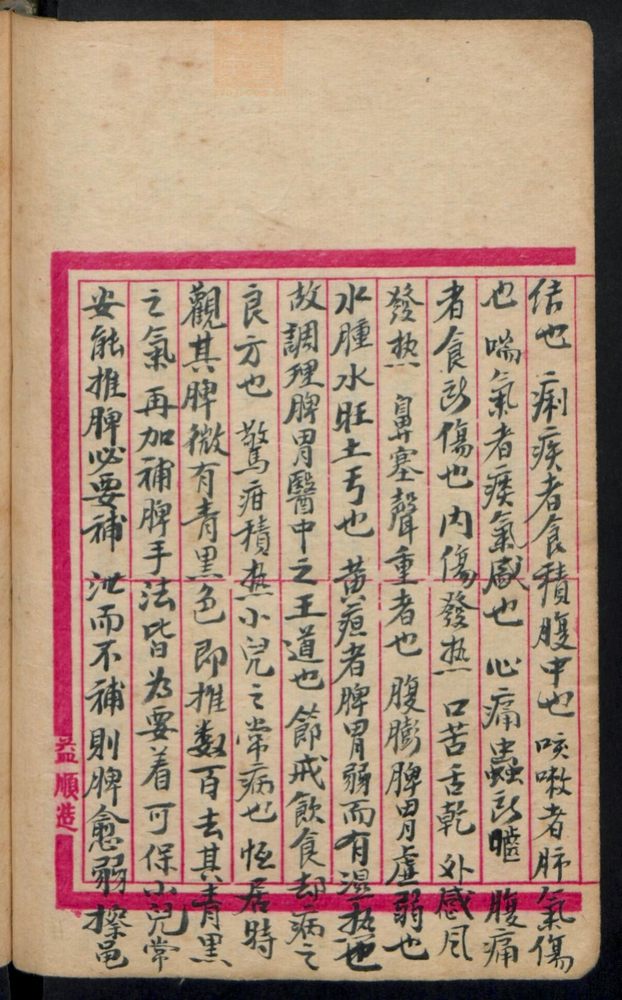 结也 痢疾者食積腹中也 咳嗽者肺氣傷
也 喘氣者痰氣盛也 心痛蟲所嚙 腹痛
者食所傷也 内傷發热 口苦舌乾 外感风
發热 鼻塞聲重者也 腹膨脾胃虚弱也
水腫水旺土亏也 黄疸者脾胃弱而有濕热也
故調理脾胃醫中之王道也 節戒飲食却病之
良方也 驚疳積热小兒之常病也 恒居時
觀其脾微有青黑色 即推数百去其青黑
之氣 再加補脾手法皆为要着可保小兒常
安能推脾必要補 泄而不補則脾愈弱
益順造